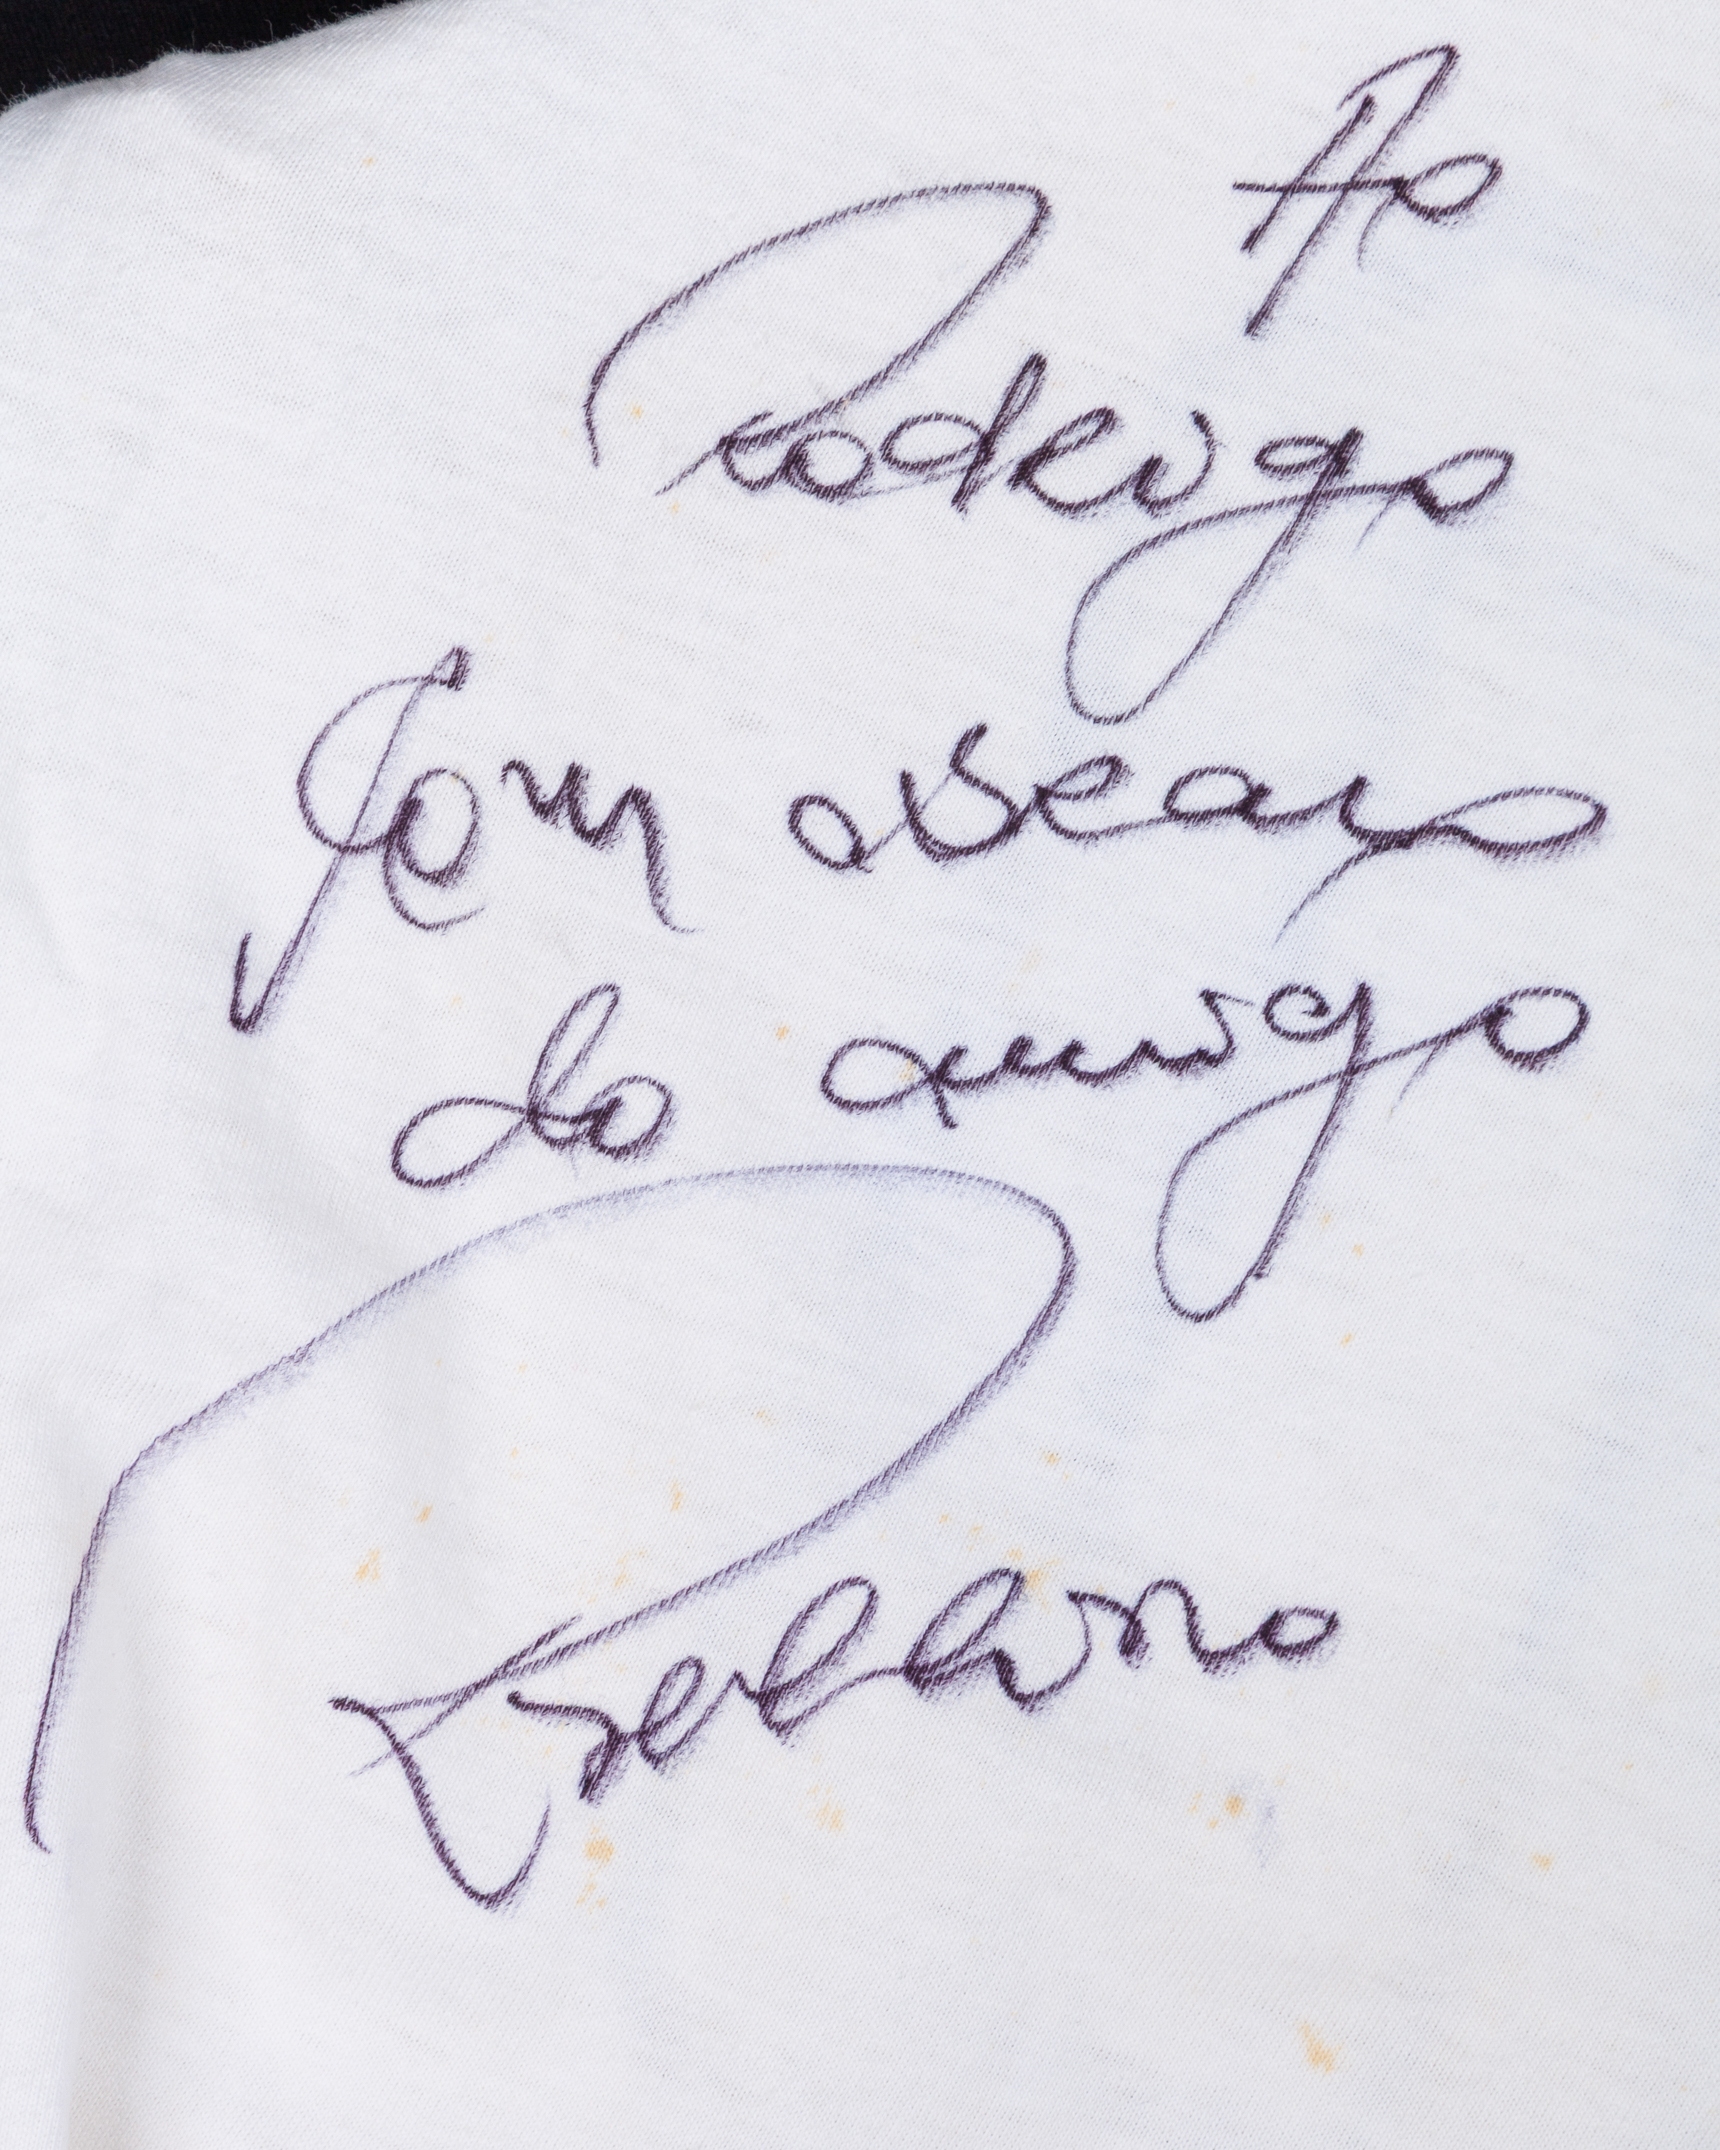 Ao
Rodrigo
Com abraço
do amigo
Rivellino